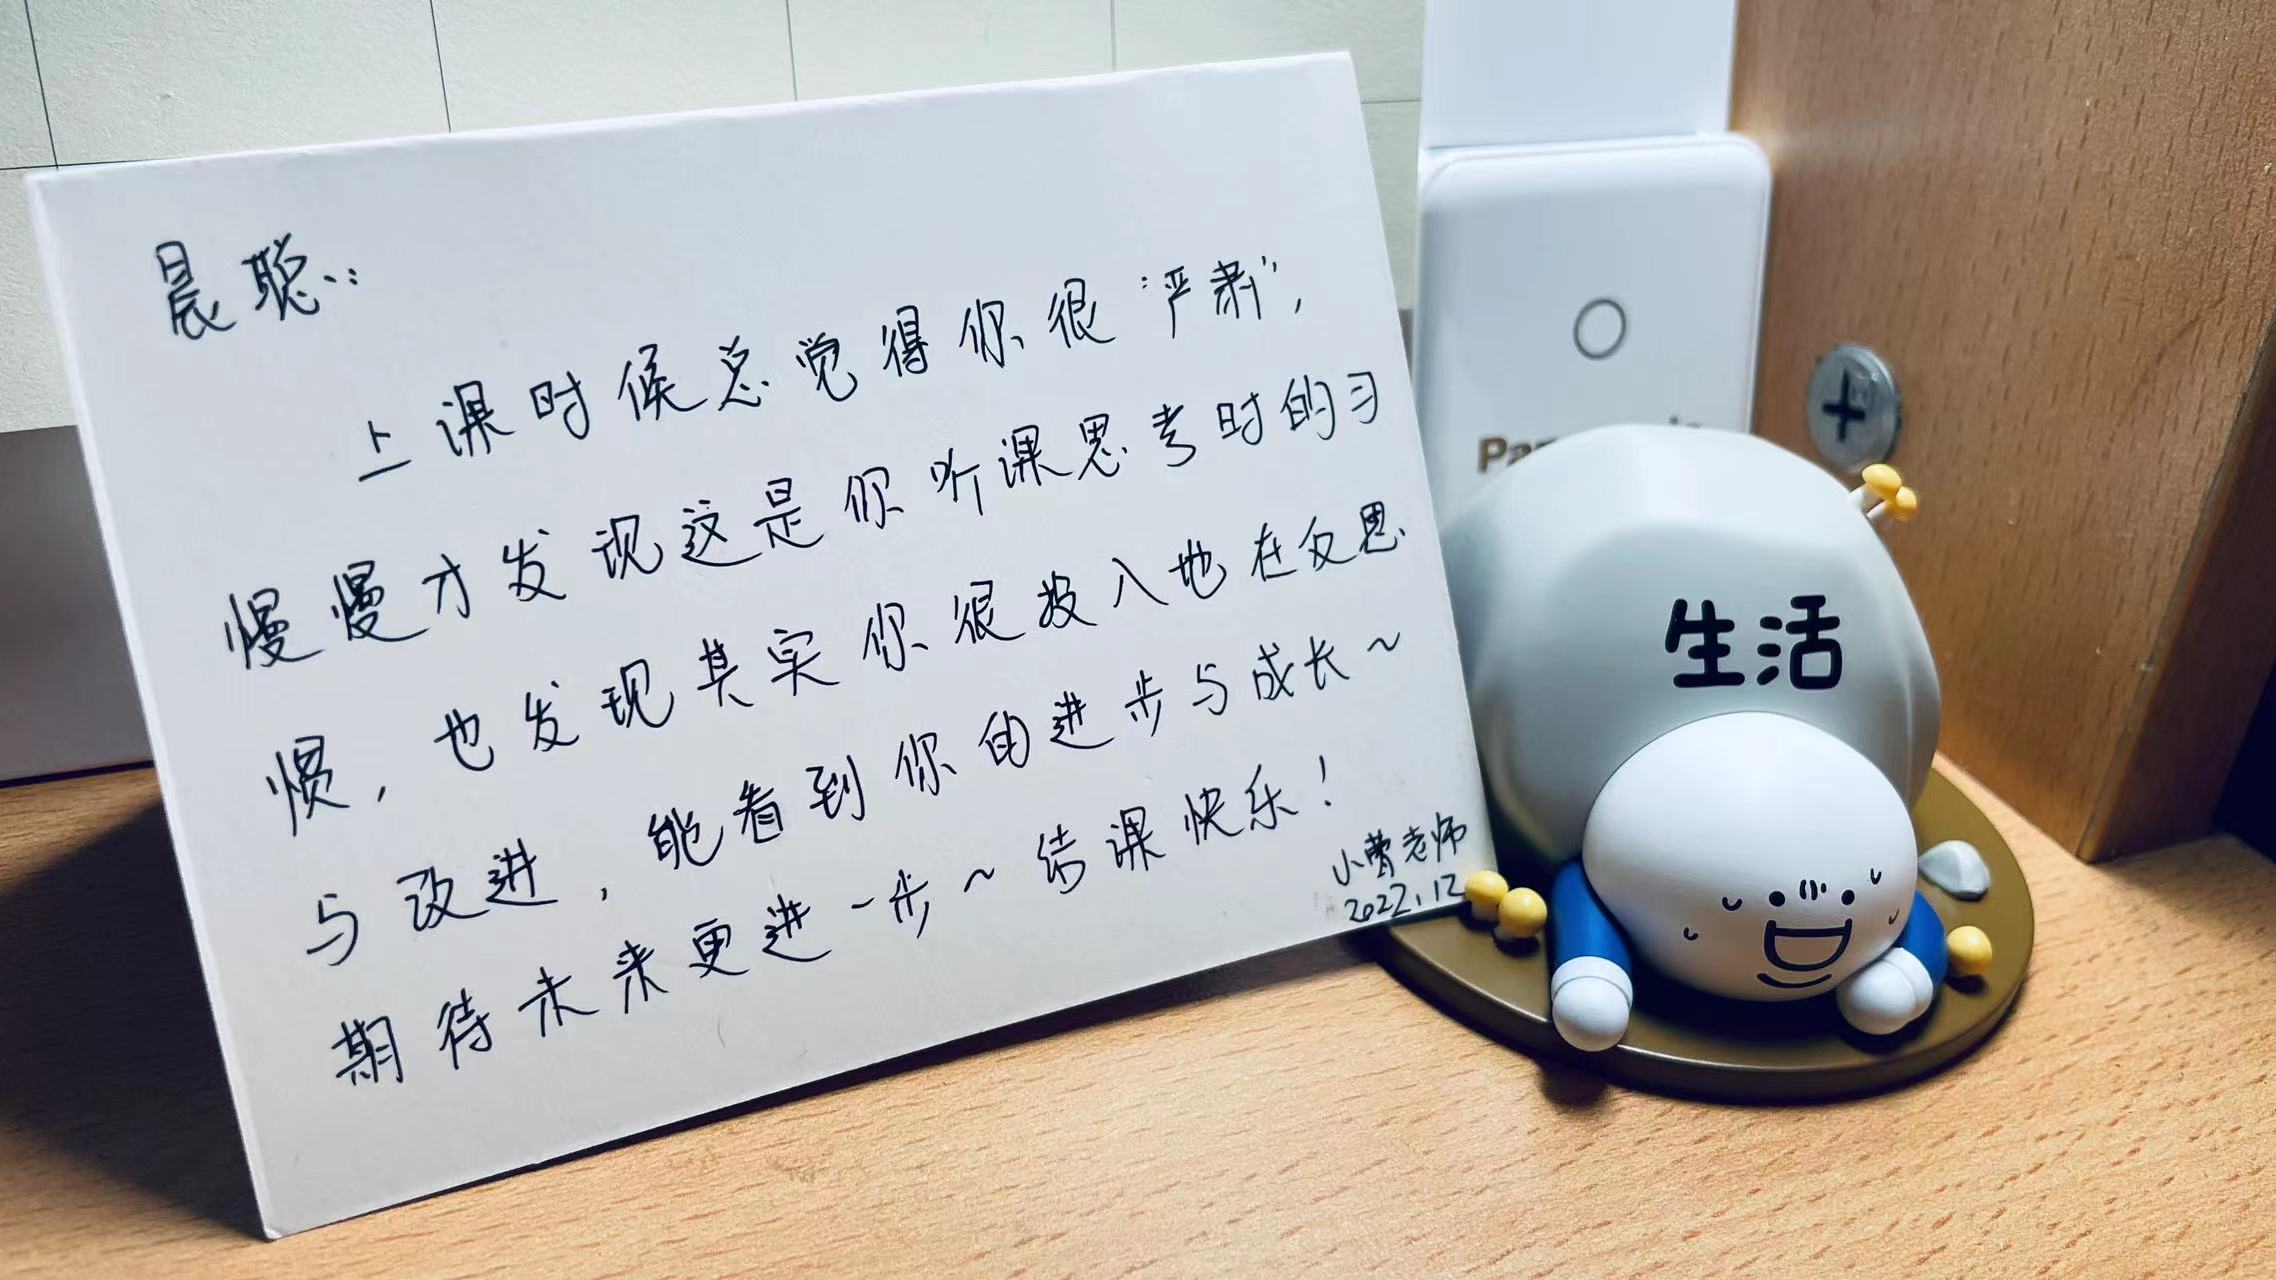 晨聪：
上课时候总觉得你很“严肃”，
慢慢才发现这是你听课思考时的习
惯，也发现其实你很投入地在反思
与改进，能看到你的进步与成长～
期待未来更进一步～结课快乐！
小曹老师
2022.12
生活